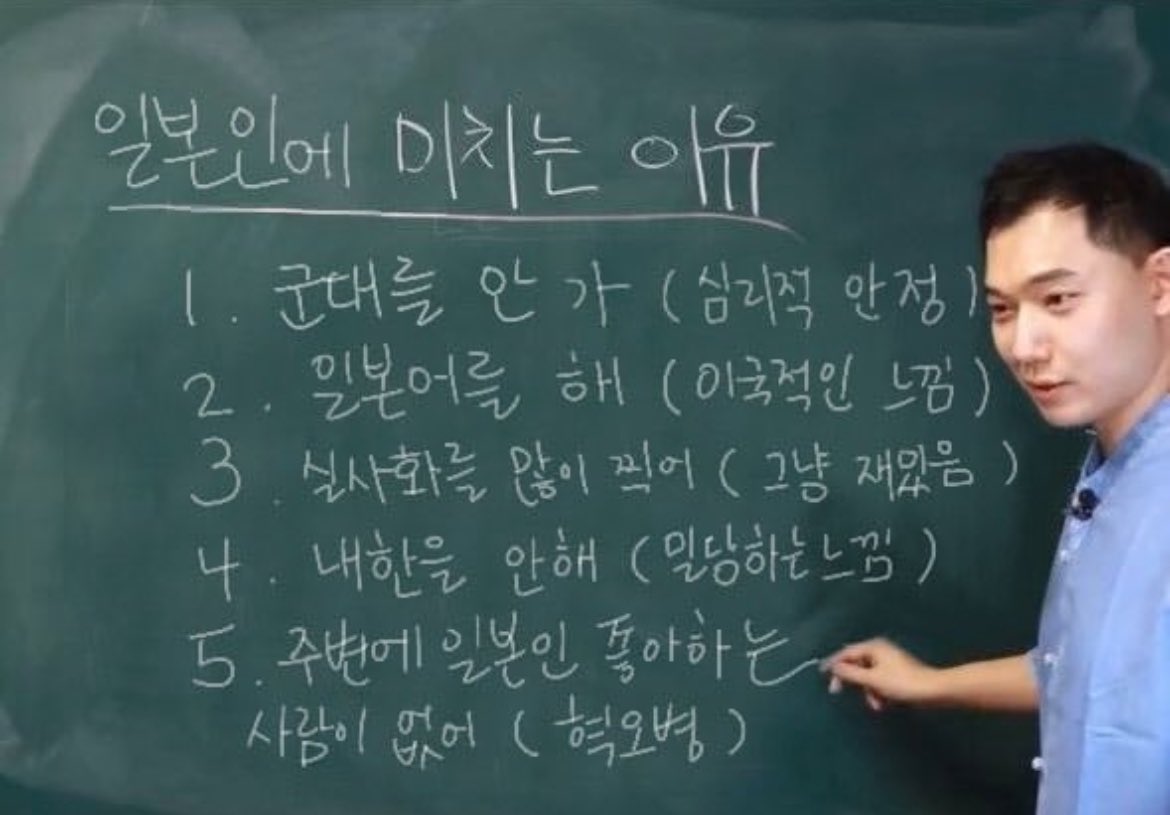 일본인에 미치는 이유
1. 군대를 안 가 (심리적 안정)
2. 일본어를 해 (이국적인 느낌)
3. 실사화를 많이 찍어 (그냥 재밌음)
4. 내한을 안해 (밀당하는느낌)
5. 주변에 일본인 좋아하는
사람이 없어 (혁오병)